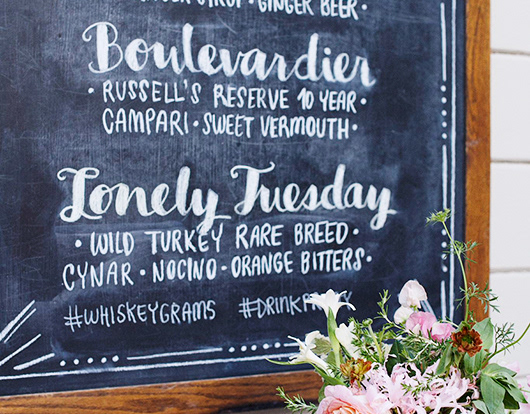 GINGER BEER ·
Boulevardier
· RUSSELL'S RESERVE 10 YEAR ·
CAMPARI · SWEET VERMOUTH ·
Lonely Tuesday
· WILD TURKEY RARE BREED ·
CYNAR · NOCINO · ORANGE BITTERS ·
#WHISKEYGRAMS